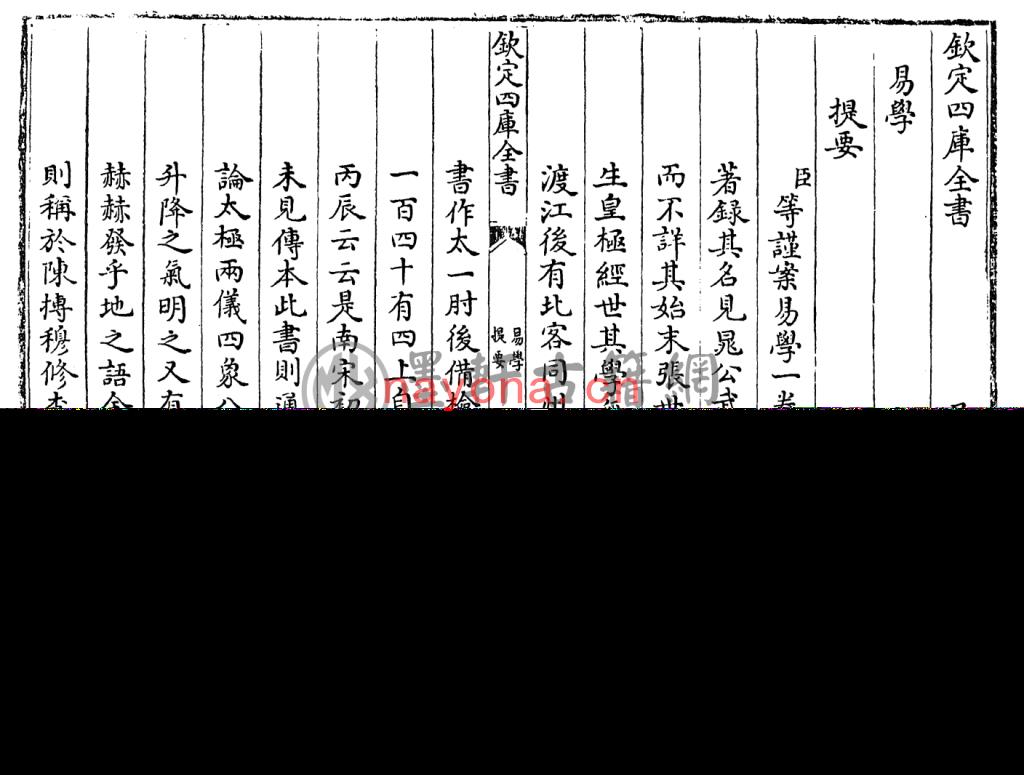 欽定四庫全書
易學
提要
臣等謹案易學一卷
著録其名見晁公武
而不詳其始末張世
生皇極經世其學
渡江後有北客同州
欽定四庫全書
易學
提要
書作太一肘後備檢
一百四十有四上自
丙辰云云是南宋初
未見傳本此書則
論太極兩儀四象八
升降之氣明之又有
赫赫發乎地之語全
則稱於陳摶穆修李
墨軒古籍網
nayona.cn